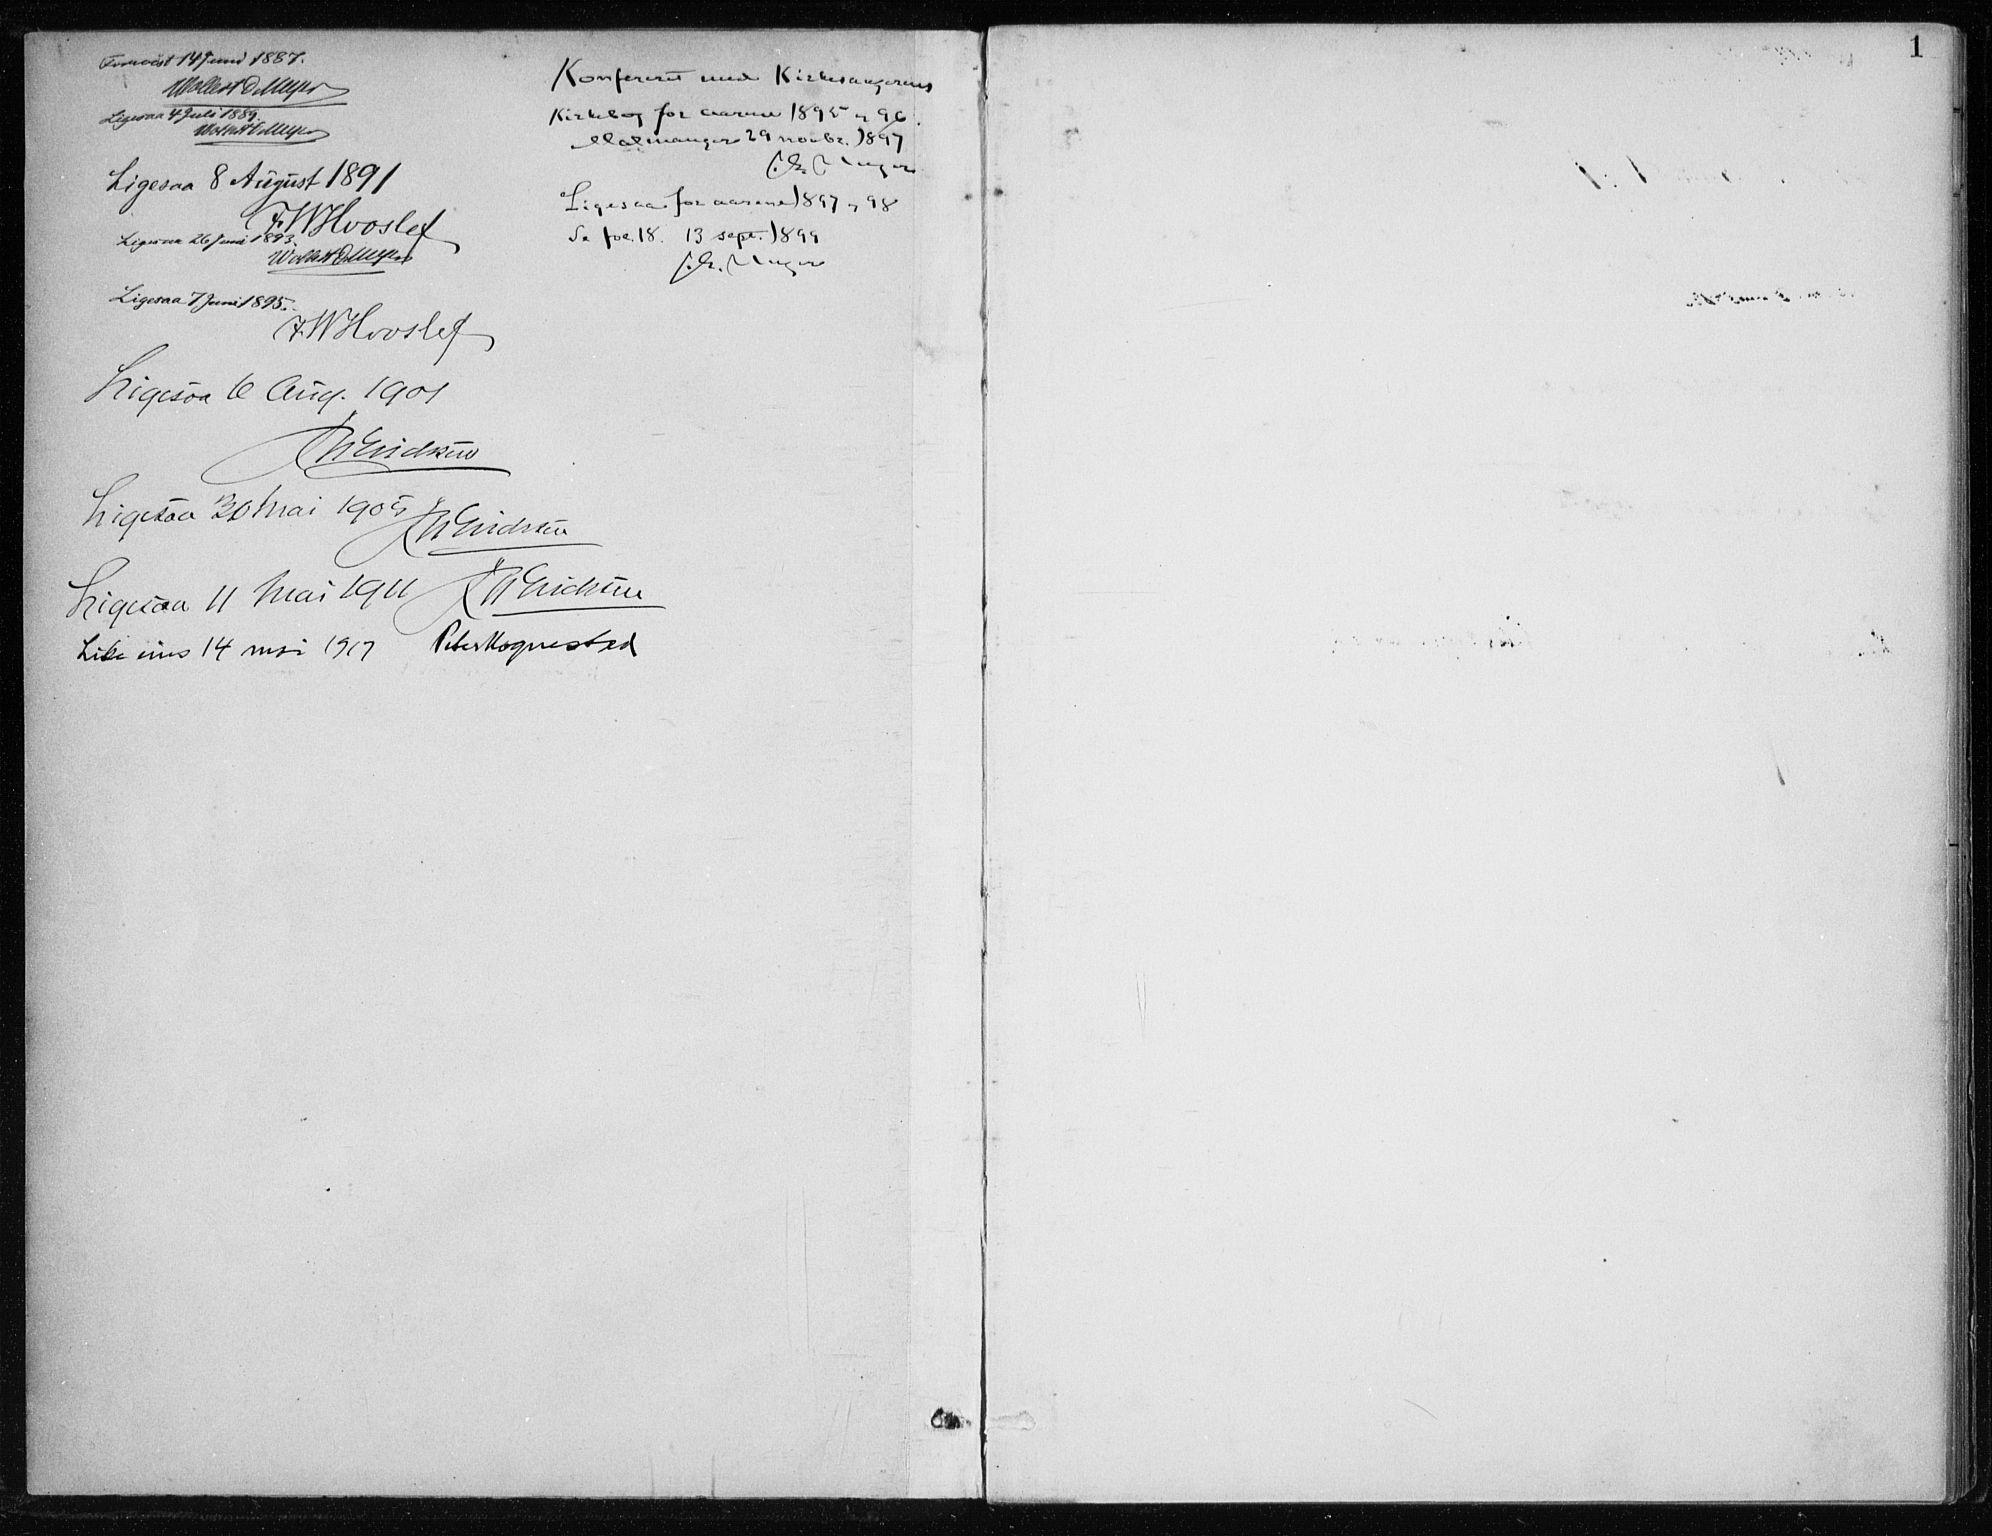 Forevist 14 Juni 1887.
Wollert D Meyer
Ligesaa 4 Juli 1889.
Wollert D Meyer
Ligesaa 8 August 1891
F. W Hvoslef
Ligesaa 26 Juni 1893.
Wollert D Meyer
Ligesaa 7 Juni 1895.
F. W Hvoslef
Ligesaa 6 Aug. 1901
Erichsen
Ligesaa 30 Mai 1905
Erichsen
Ligesaa 11 Mai 1911
Erichsen
Like eins 14 mai 1917 Peter Hognestad
Konfereret med Kirkesangerens
Kirkebog for aarene 1895 og 96.
Malmanger 29 novbr. 1897
Unger
Ligesaa for aarene 1897 og 98
Se fol. 18. 13 sept. 1899
Unger
1